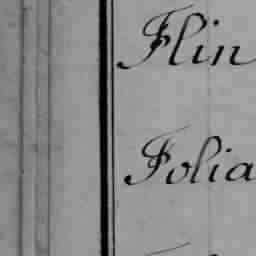 Flin
Folia